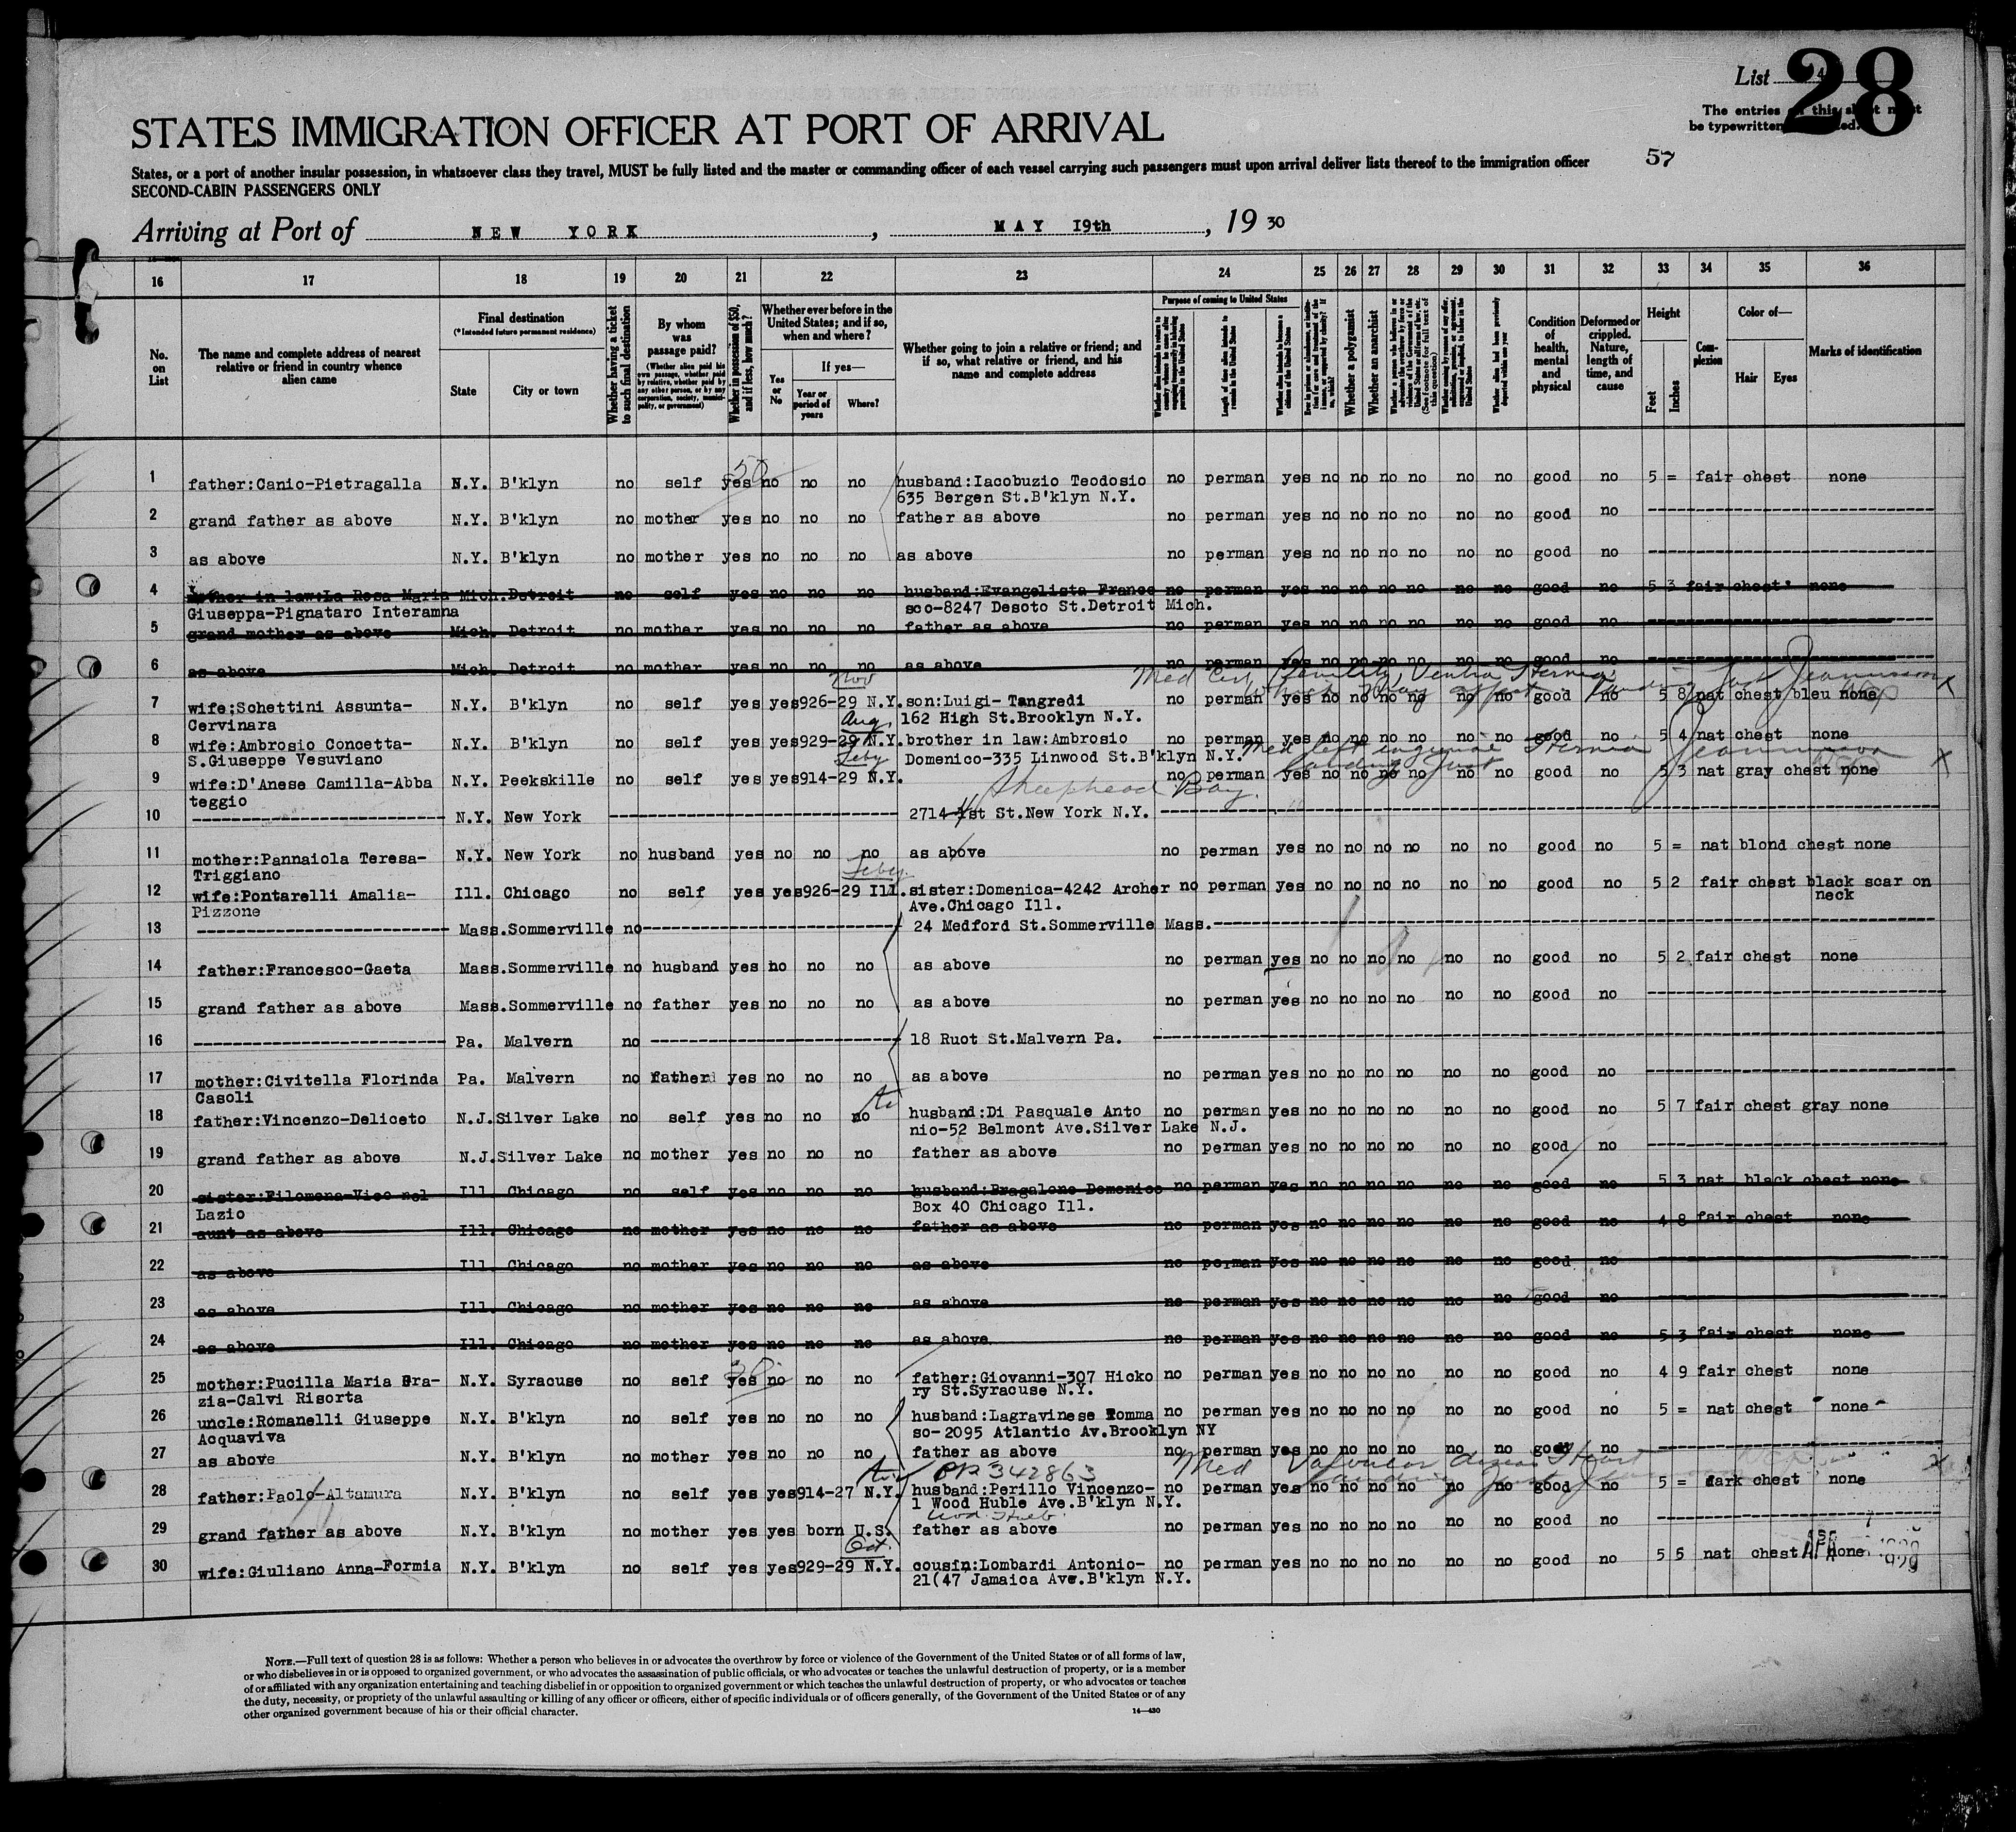 List 4
28
The entries on this sheet must
be typewritten
STATES IMMIGRATION OFFICER AT PORT OF ARRIVAL
57
States, or a port of another insular possession, in whatsoever class they travel, MUST be fully listed and the master or commanding officer of each vessel carrying such passengers must upon arrival deliver lists thereof to the immigration officer
SECOND-CABIN PASSENGERS ONLY
Arriving at Port of NEW YORK, MAY 19th, 19 30
16 17 18 19 20 21 22 23 24 25 26 27 28 29 30 31 32 33 34 35 36
No. on List
The name and complete address of nearest relative or friend in country whence alien came
Final destination
(*Intended future permanent residence)
State
City or town
Whether having a ticket to such final destination
By whom was passage paid?
(Whether alien paid his own passage, whether paid by relative, whether paid by any other person, or by any corporation, society, municipality, or government)
Whether in possession of $50, and if less, how much?
Whether ever before in the United States; and if so, when and where?
Yes or No
If yes—
Year or period of years
Where?
Whether going to join a relative or friend; and if so, what relative or friend, and his name and complete address
Purpose of coming to United States
Length of time alien intends to remain in the United States
Whether alien intends to become a citizen of the United States
Whether a polygamist
Whether an anarchist
Condition of health, mental and physical
Deformed or crippled. Nature, length of time, and cause
Height
Feet
Inches
Complexion
Color of—
Hair
Eyes
Marks of identification
50
1 father:Canio-Pietragalla N.Y. B'klyn no self yes no no no husband:Iacobuzio Teodosio no perman yes no no no no no no good no 5 = fair chest none
635 Bergen St.B'klyn N.Y.
2 grand father as above N.Y. B'klyn no mother yes no no no father as above no perman yes no no no no no no good no
3 as above N.Y. B'klyn no mother yes no no no as above no perman yes no no no no no no good no
4 mother in law:La Rosa Maria Mich. Detroit no self yes no no no husband:Evangelista France no perman yes no no no no no no good no 5 3 fair chest none
Giuseppa-Pignataro Interamna sco-8247 Desoto St.Detroit Mich.
5 grand mother as above Mich. Detroit no mother yes no no no father as above no perman yes no no no no no no good no
6 as above Mich. Detroit no mother yes no no no as above no perman yes no no no no no no good no
Nov Med Cert Senility, Hernia
7 wife:Sohettini Assunta- N.Y. B'klyn no self yes yes 926-29 N.Y. son:Luigi- Tangredi no perman yes no no no no no no good no 5 8 nat chest bleu none
Cervinara Aug. 162 High St.Brooklyn N.Y.
8 wife:Ambrosio Concetta- N.Y. B'klyn no self yes yes 929-29 N.Y. brother in law:Ambrosio no perman yes no no no no no no good no 5 4 nat chest none
S.Giuseppe Vesuviano Feby Domenico-335 Linwood St.B'klyn N.Y. Med left inguinal Hernia
9 wife:D'Anese Camilla-Abba N.Y. Peekskille no self yes yes 914-29 N.Y. no perman yes no no no no no no good no 5 3 nat gray chest none
teggio Sheephead Bay.
10 N.Y. New York 2714- st St.New York N.Y.
11 mother:Pannaiola Teresa- N.Y. New York no husband yes no no no as above no perman yes no no no no no no good no 5 = nat blond chest none
Triggiano Feby
12 wife:Pontarelli Amalia- Ill. Chicago no self yes yes 926-29 Ill. sister:Domenica-4242 Archer no perman yes no no no no no no good no 5 2 fair chest black scar on
Pizzone Ave.Chicago Ill. neck
13 Mass. Sommerville no 24 Medford St.Sommerville Mass.
14 father:Francesco-Gaeta Mass. Sommerville no husband yes no no no as above no perman yes no no no no no no good no 5 2 fair chest none
15 grand father as above Mass. Sommerville no father yes no no no as above no perman yes no no no no no no good no
16 Pa. Malvern no 18 Ruot St.Malvern Pa.
17 mother:Civitella Florinda Pa. Malvern no father yes no no no as above no perman yes no no no no no no good no
Casoli
18 father:Vincenzo-Deliceto N.J. Silver Lake no self yes no no no husband:Di Pasquale Anto no perman yes no no no no no no good no 5 7 fair chest gray none
nio-52 Belmont Ave.Silver Lake N.J.
19 grand father as above N.J. Silver Lake no mother yes no no no father as above no perman yes no no no no no no good no
20 sister:Filomena-Vico nel Ill. Chicago no self yes no no no husband:Bragalone Domenico no perman yes no no no no no no good no 5 3 nat black chest none
Lazio Box 40 Chicago Ill.
21 aunt as above Ill. Chicago no mother yes no no no father as above no perman yes no no no no no no good no 4 8 fair chest none
22 as above Ill. Chicago no mother yes no no no as above no perman yes no no no no no no good no
23 as above Ill. Chicago no mother yes no no no as above no perman yes no no no no no no good no
24 as above Ill. Chicago no mother yes no no no as above no perman yes no no no no no no good no 5 3 fair chest none
25 mother:Pucilla Maria Gra- N.Y. Syracuse no self yes no no no father:Giovanni-307 Hicko no perman yes no no no no no no good no 4 9 fair chest none
zia-Calvi Risorta ry St.Syracuse N.Y.
26 uncle:Romanelli Giuseppe N.Y. B'klyn no self yes no no no husband:Lagravinese Tomma no perman yes no no no no no no good no 5 = nat chest none
Acquaviva so-2095 Atlantic Av.Brooklyn NY
27 as above N.Y. B'klyn no mother yes no no no father as above no perman yes no no no no no no good no
PR 342863 Med Valvular disease Heart
28 father:Paolo-Altamura N.Y. B'klyn no self yes yes 914-27 N.Y. husband:Perillo Vincenzo- no perman yes no no no no no no good no 5 = dark chest none
1 Wood Huble Ave.B'klyn N.Y.
29 grand father as above N.Y. B'klyn no mother yes yes born U.S. father as above no perman yes no no no no no no good no
Oct.
30 wife:Giuliano Anna-Formia N.Y. B'klyn no self yes yes 929-29 N.Y. cousin:Lombardi Antonio- no perman yes no no no no no no good no 5 5 nat chest none
21(47 Jamaica Ave.B'klyn N.Y.
NOTE.—Full text of question 28 is as follows: Whether a person who believes in or advocates the overthrow by force or violence of the Government of the United States or of all forms of law,
or who disbelieves in or is opposed to organized government, or who advocates the assassination of public officials, or who advocates or teaches the unlawful destruction of property, or is a member
of or affiliated with any organization entertaining and teaching disbelief in or opposition to organized government or which teaches the unlawful destruction of property, or who advocates or teaches
the duty, necessity, or propriety of the unlawful assaulting or killing of any officer or officers, either of specific individuals or of officers generally, of the Government of the United States or of any
other organized government because of his or their official character.
14—430